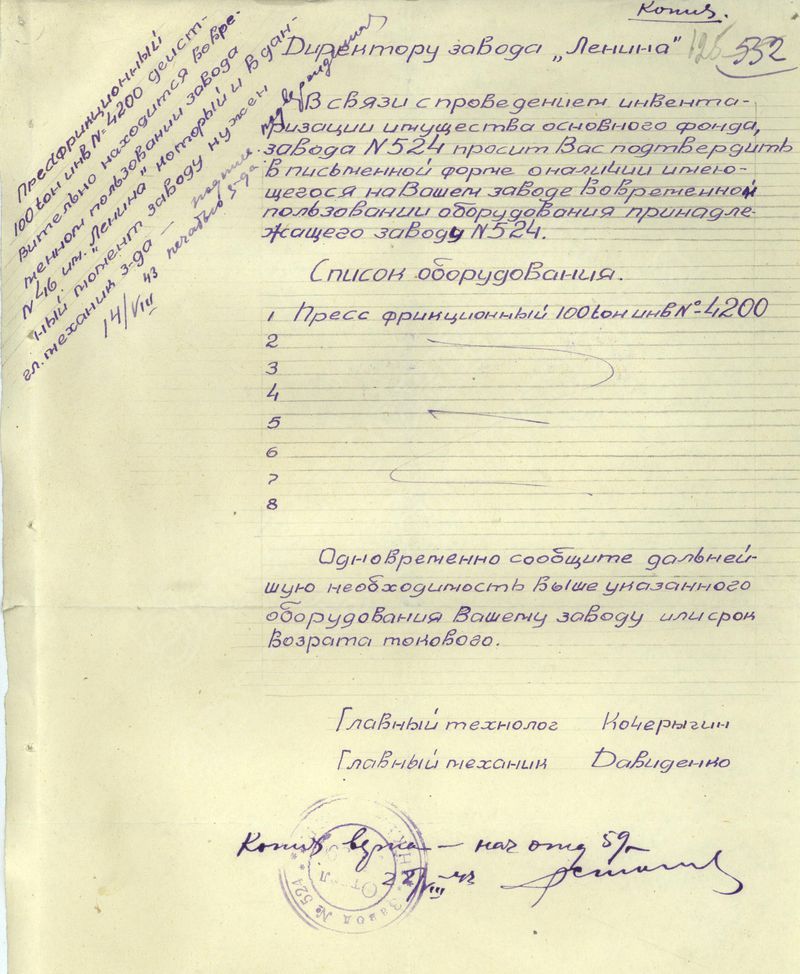 Копия.
125 552
Директору завода „Ленина"
В связи с проведением инвента-
ризации имущества основного фонда,
завода N 524 просит Вас подтвердить
в письменной форме о наличии имею-
щегося на Вашем заводе во временном
пользовании оборудования принадле-
жащего заводу N 524.
Список оборудования.
1 Пресс фрикционный 100 тон инв №-4200
2
3
4
5
6
7
8
Одновременно сообщите дальней-
шую необходимость выше указанного
оборудования Вашему заводу или срок
возрата токового.
Главный технолог Кочерыгин
Главный механик Давиденко
Копия верна — нач отд 59
VIII
Завод № 524
Пресфрикционный
100 тон инв №-4200 деист-
вительно находится во вре-
менном пользовании завода
N 46 им. „Ленина" который и в дан-
ный момент заводу нужен
гл. механик з-да — подпись подверждена
14/VIII 43 печатью з-да